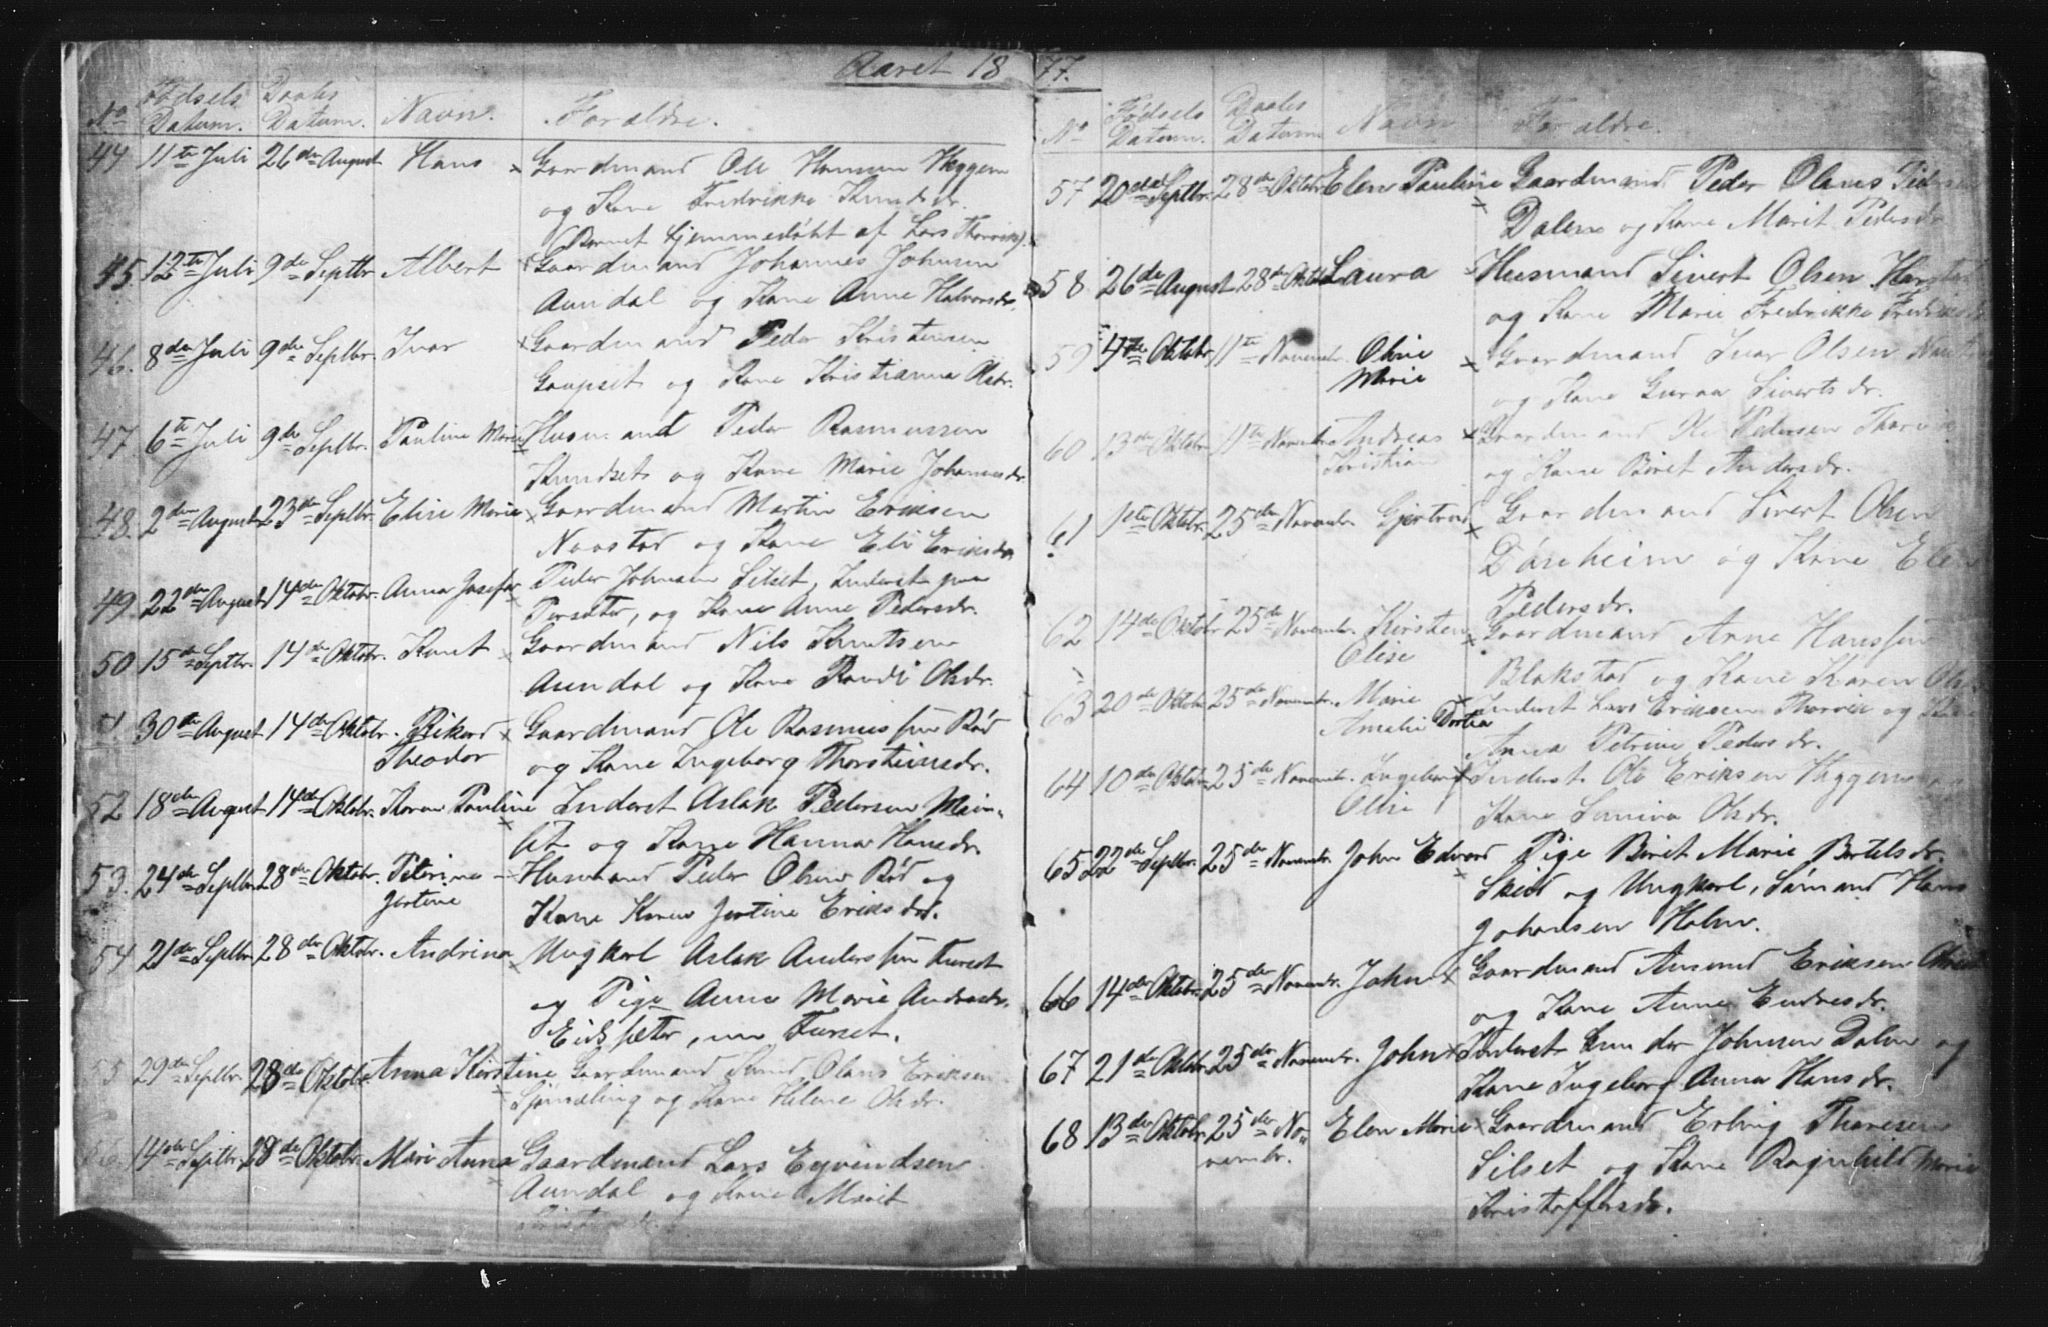 Aaret 1877.
No Fødsels Datum. Daabs Datum. Navn. Forældre.
44 11te Juli 26de August Hans Gaardmand Ole Hansen Heggem
og Kone Fredrikke Knudsdr.
(Barnet hjemmedøbt af Lars Thorvig).
45 12te Juli 9de Septbr Albert Gaardmand Johannes Johnsen
Aundal og Kone Anne Halvorsdr.
46. 8de Juli 9de Septbr. Ivar Gaardmand Peder Kristensen
Gaupset og Kone Kristianna Olsdr.
47. 6te Juli 9de Septbr. Pauline Marie Husmand Peder Rasmussen
Knudset og Kone Marie Johannesdr.
48. 2den August 23de Septbr. Elise Marie Gaardmand Martin Eriksen
Naastad og Kone Eli Eriksdr.
49. 22de August 14de Oktobr. Anna Josefa Peder Johnsen Silset, Inderst paa
Torsæter, og Kone Anne Pedersdr.
50 15de Septbr. 14de Oktobr. Knut Gaardmand Nils Knutsen
Aundal og Kone Randi Olsdr.
51 30te August 14de Oktobr. Rikard Gaardmand Ole Rasmussen Rød
Theodor og Kone Ingeborg Thorsteinsdr.
52 18de August 14de Oktobr. Karen Pauline Inderst Aslak Pedersen Mein-
set og Kone Hanna Hansdr.
53. 24de Septbr 28de Oktobr. Peterine Husmand Peder Olsen Rød og
Jertine Kone Karen Jertine Eriksdr.
54 21de Septbr. 28de Oktobr. Andrina Ungkarl Aslak Anderssen Furset
og Pige Anne Marie Andreasdr.
Eidssæter, nu Furset.
55 29de Septbr. 28de Oktobr. Anna Kirstine Gaardmand Knud Olaus Eriksen
og Kone Helene Olsdr.
56. 14de Septbr. 28de Oktobr. Mari Anna Gaardmand Lars Eyvendsen
Aundal og Kone Marit
No Fødsels Datum. Daabs Datum Navn Forældre.
57 20de Septbr. 28de Oktbr Elen Pauline Gaardmand Peder Olaus Pedersen
Dalen og Kone Marit Pedersdr
58. 26de August 28de Oktbr Laura Husmand Sivert Olsen
og Kone Marie Fredrikke
59 4de Oktobr. 11te Novembr. Oline Gaardmand Ivar Olsen
Marie og Kone Guraa Sivertsdr.
60 13de Oktobr. 11te Novembr Andreas Gaardmand Ole Pedersen Thorvig
Kristian og Kone Beret Andersdr.
61 1ste Oktobr. 25de Novembr. Gjertrud Gaardmand Sivert Olsen
og Kone Elen
Pedersdr.
62 14de Oktobr 25de Novembr. Kirsten Gaardmand Arne Hanssen
Elise Blakstad og Kone Karen
63 20de Oktobr 25de Novembr. Marie Inderst Lars Eriksen Thorvig og Kone
Amalie Dortea Anna Petrine Pedersdr.
64 10de Oktobr 25de Novembr. Ingeborg Inderst Ole Eriksen Heggem
Elise Kone Sinnva Olsdr.
65 22de Septbr. 25de Novembr. John Edvard Pige Beret Marie Bertelsdr.
Skeid og Ungkarl, Sømand Hans
Johansen Holm.
66 14de Oktobr. 25de Novembr. John Gaardmand Amund Eriksen
og Kone Anne Endresdr.
67 21de Oktobr. 25de Novembr. John Inderst Gunder Johnsen Dalen og
Kone Ingeborg Anna Hansdr.
68 13de Oktobr. 25de No- Elen Marie Gaardmand Erling Thoresen
vembr. Silset og Kone Ragnhild Marie
Kristoffersdr.